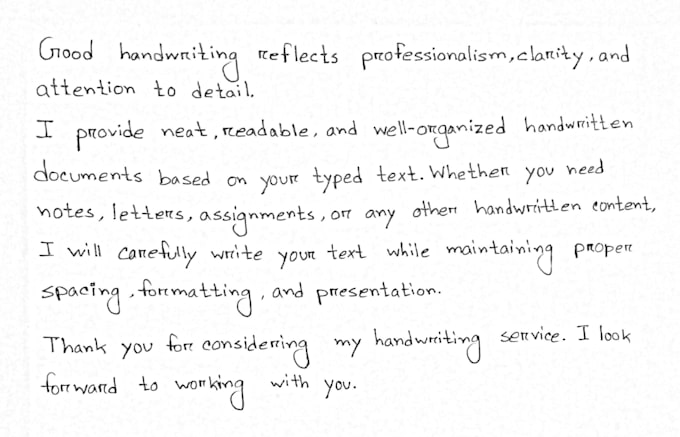 Good handwriting reflects professionalism, clarity, and
attention to detail.
I provide neat, readable, and well-organized handwritten
documents based on your typed text. Whether you need
notes, letters, assignments, or any other handwritten content,
I will carefully write your text while maintaining proper
spacing, formatting, and presentation.
Thank you for considering my handwriting service. I look
forward to working with you.